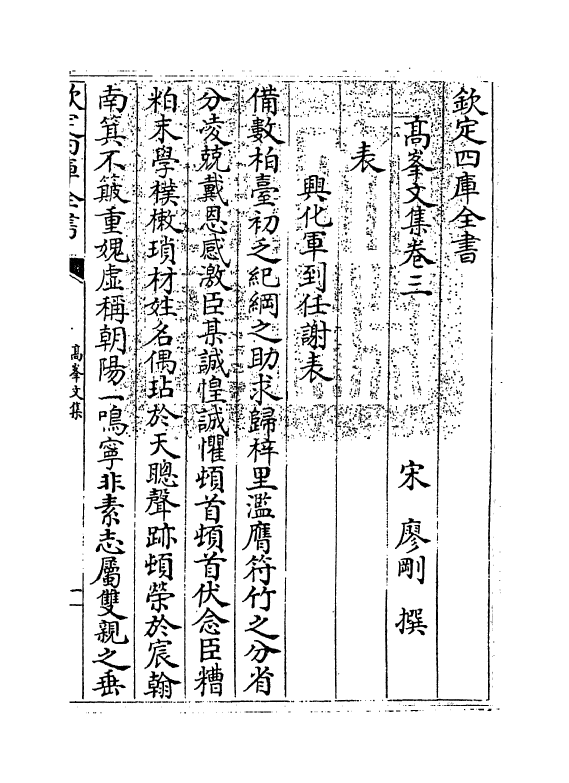 欽定四庫全書
髙峯文集卷三
宋 廖剛 撰
表
興化軍到任謝表
備數柏臺初乏紀綱之助求歸梓里濫膺符竹之分省
分凌兢戴恩感激臣某誠惶誠懼頓首頓首伏念臣糟
粕末學樸樕瑣材姓名偶玷於天聰聲跡頓榮於宸翰
南箕不簸重媿虛稱朝陽一鳴寜非素志屬雙親之垂
欽定四庫全書
髙峯文集
一